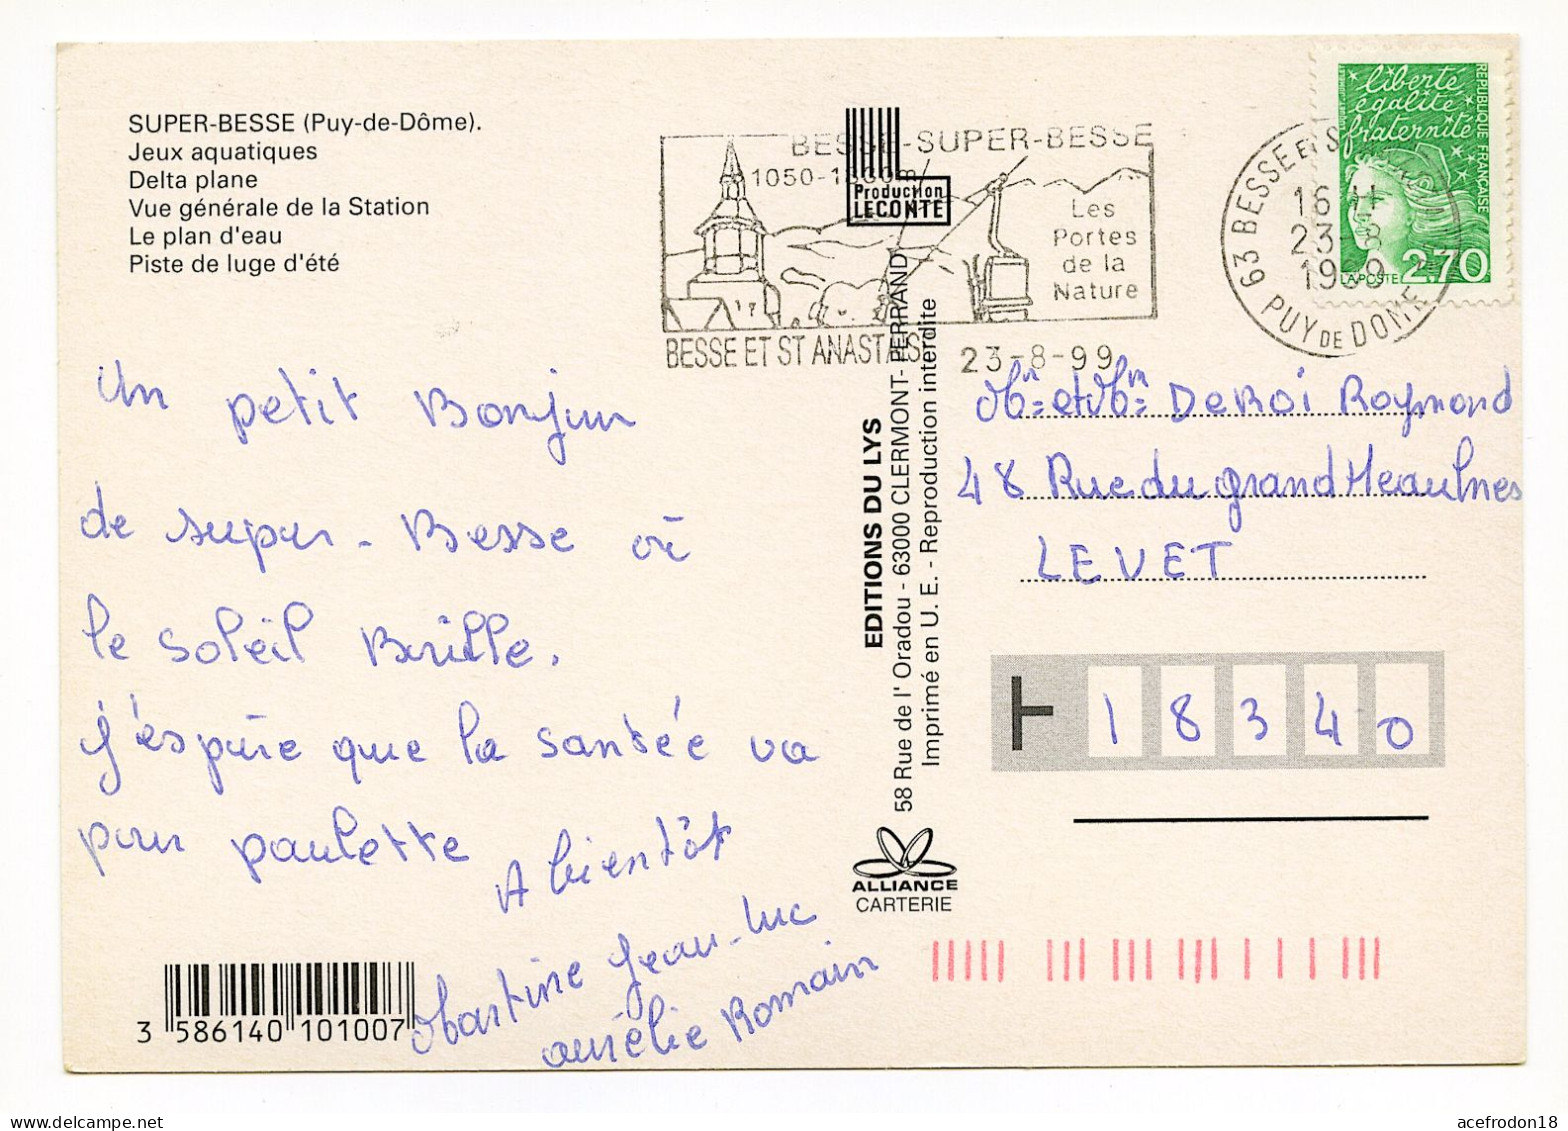 SUPER-BESSE (Puy-de-Dôme).
Jeux aquatiques
Delta plane
Vue générale de la Station
Le plan d'eau
Piste de luge d'été
un petit Bonjour
de super-Besse où
le soleil Brille.
j'espère que la santée va
pour paulette
A bientôt
Martine Jean-Luc
aurélie Romain
3 586140 101007
BESSE-SUPER-BESSE
1050-1850m
Les
Portes
de la
Nature
BESSE ET ST ANASTAISE 23-8-99
Production
LECONTE
EDITIONS DU LYS
58 Rue de l'Oradou - 63000 CLERMONT-FERRAND
Imprimé en U. E. - Reproduction interdite
ALLIANCE
CARTERIE
63 BESSE ET S
16 H
23-8
1999
PUY DE DOME
liberté
égalité
fraternité
REPUBLIQUE FRANÇAISE
LA POSTE 2,70
Mr et Mme DEROI Raymond
48 Rue du grand Meaulnes
LEVET
18340
acefrodon18